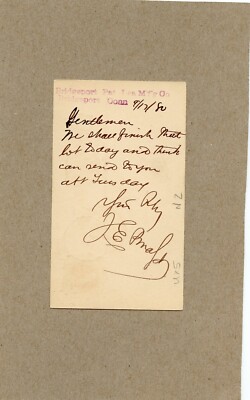 Bridgeport Pat. Mfg Co
Conn 9/17/80
Gentlemen
We shall finish that
lot today and think
can send to you
all Tuesday
Yours
J E